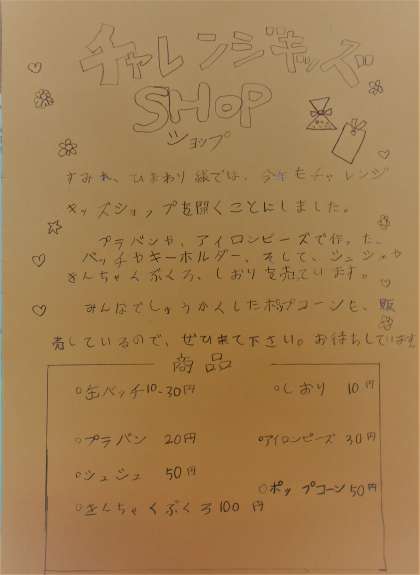 チャレンジキッズ
SHOP
ショップ
すみれ、ひまわり級では、今年もチャレンジ
キッズショップを開くことにしました。
プラバンや、アイロンビーズで作った、
バッチやキーホルダー、そして、シュシュや
きんちゃくぶくろ、しおりを売ています。
みんなでしゅうかくしたポップコーンも、販
売しているので、ぜひ来て下さい。お待ちしています
商品
○缶バッチ10-30円 ○しおり 10円
○プラバン 20円 ○アイロンビーズ 30円
○シュシュ 50円 ○ポップコーン50円
○きんちゃくぶくろ100円